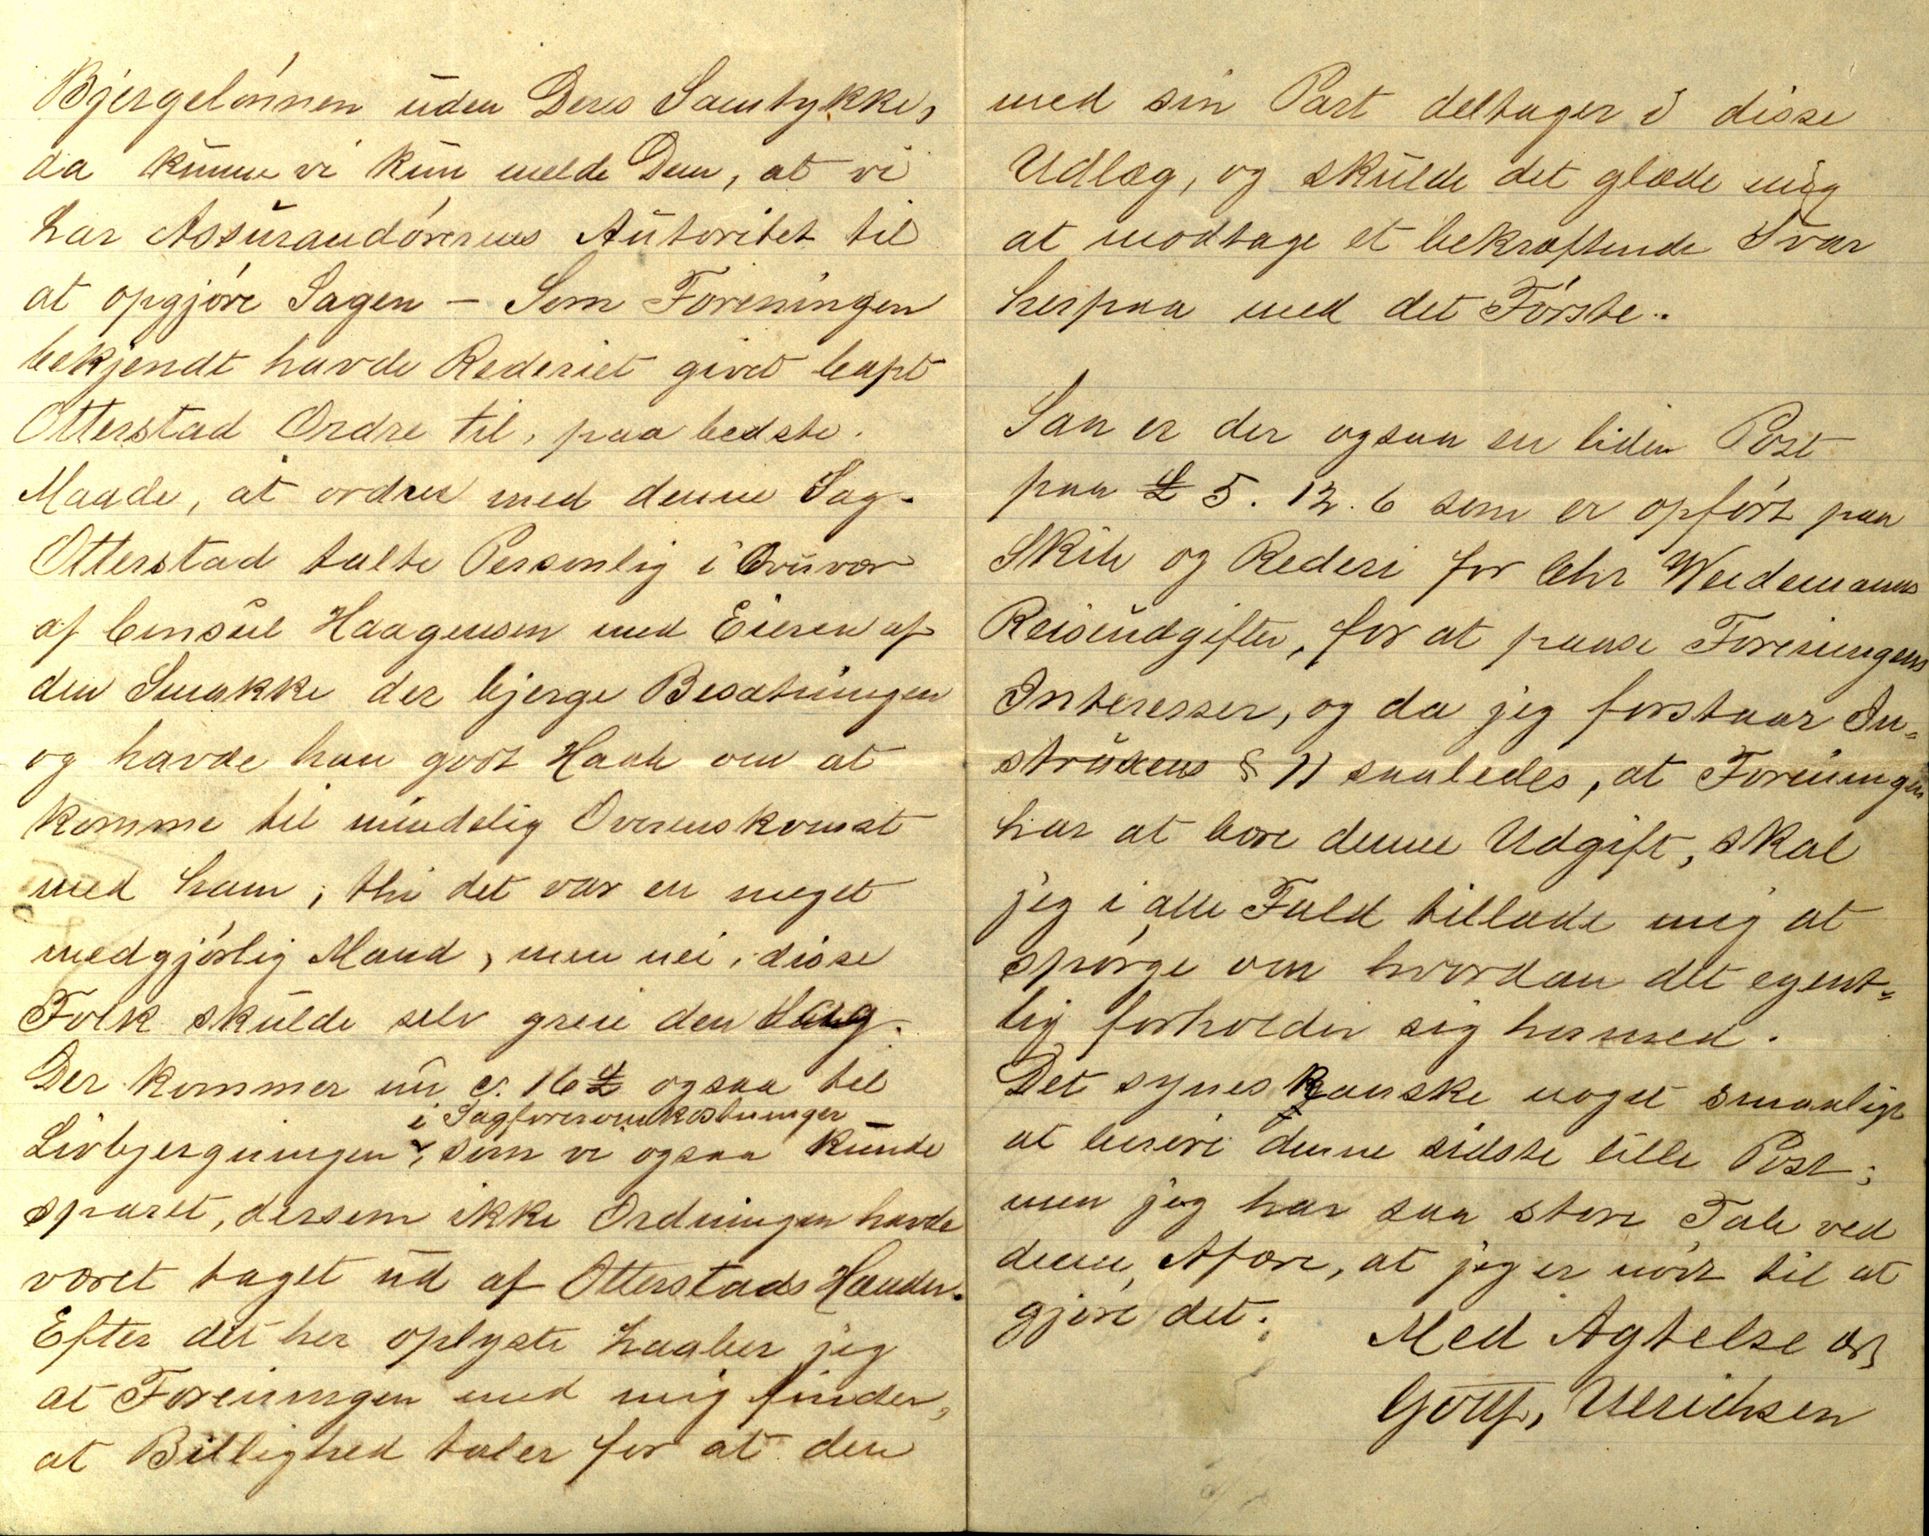 Bjergelønnen uden Deres Samtykke,
da kunne vi kun melde Dem, at vi
har Assurandørernes Autoritet til
at opgjøre Sagen – Som Foreningen
bekjendt havde Rederiet givet Capt
Otterstad Ordre til, paa bedste
Maade, at ordne med denne Sag.
Otterstad talte Personlig i
af Consul Haagensen med Eieren af
den Smakke der bjerge Besætningen
og havde han godt Haab om at
komme til mindelig Overenskomst
med ham, thi det var en meget
medgjørlig Mand, men nei, disse
Folk skulde selv greie den Sag.
Der kommer nu c. 16 £ ogsaa til
i Sagføreromkostninger
Livbjergningen, som vi ogsaa kunde
sparet, dersom ikke Ordningen havde
været taget ud af Otterstads Hænder.
Efter det her oplyste haaber jeg
at Foreningen med mig finder,
at Billighed taler for at den
med sin Part deltager i disse
Udlæg, og skulde det glæde mig
at modtage et bekræftende Svar
herpaa med det Første.
Saa er der ogsaa en liden Post
paa £ 5. 12. 6 som er opført paa
Skib og Rederi for Chr Weidemanns
Reiseudgifter, for at paase Foreningens
Interesser, og da jeg forstaar In-
struxens § 11 saaledes, at Foreningen
har at bære denne Udgift, skal
jeg i alle Fald tillade mig at
spørge om hvordan det egent-
lig forholder sig hermed.
Det synes kanske noget smaaligt
at berøre denne sidste lille Post;
men jeg har saa store Tab ved
denne Afære, at jeg er nødt til at
gjøre det.
Med Agtelse ærb
Gottf. Ulrichsen